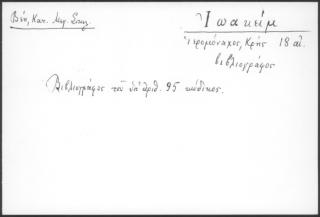 Βέη, Κατ. Μεγ. Σπηλ.
Ἰωακείμ
ἱερομόναχος, Κρής 18 αἰ.
βιβλιογράφος
Βιβλιογράφος τοῦ ὑπ' ἀριθ. 95 κώδικος.